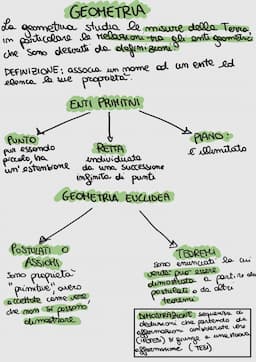 GEOMETRIA
La geometria studia le misure della Terra,
in particolare le relazioni tra gli enti geometrici
che sono derivati da definizioni.
DEFINIZIONE: associa un nome ad un ente ed
elenca le sue proprietà.
ENTI PRIMITIVI
PUNTO
pur essendo
piccolo, ha
un'estensione
RETTA
individuata
da una successione
infinita di punti
PIANO:
è illimitato
GEOMETRIA EUCLIDEA
POSTULATI O
ASSIOMI
sono proprietà
"primitive", ovvero
accettate come vere
che non si possono
dimostrare
TEOREMI
sono enunciati la cui
verità può essere
dimostrata a partire da
postulati o da altri
teoremi
DIMOSTRAZIONE: sequenza di
deduzioni che partendo da
affermazioni considerate vere
(IPOTESI) si giunge a una nuova
affermazione (TESI)